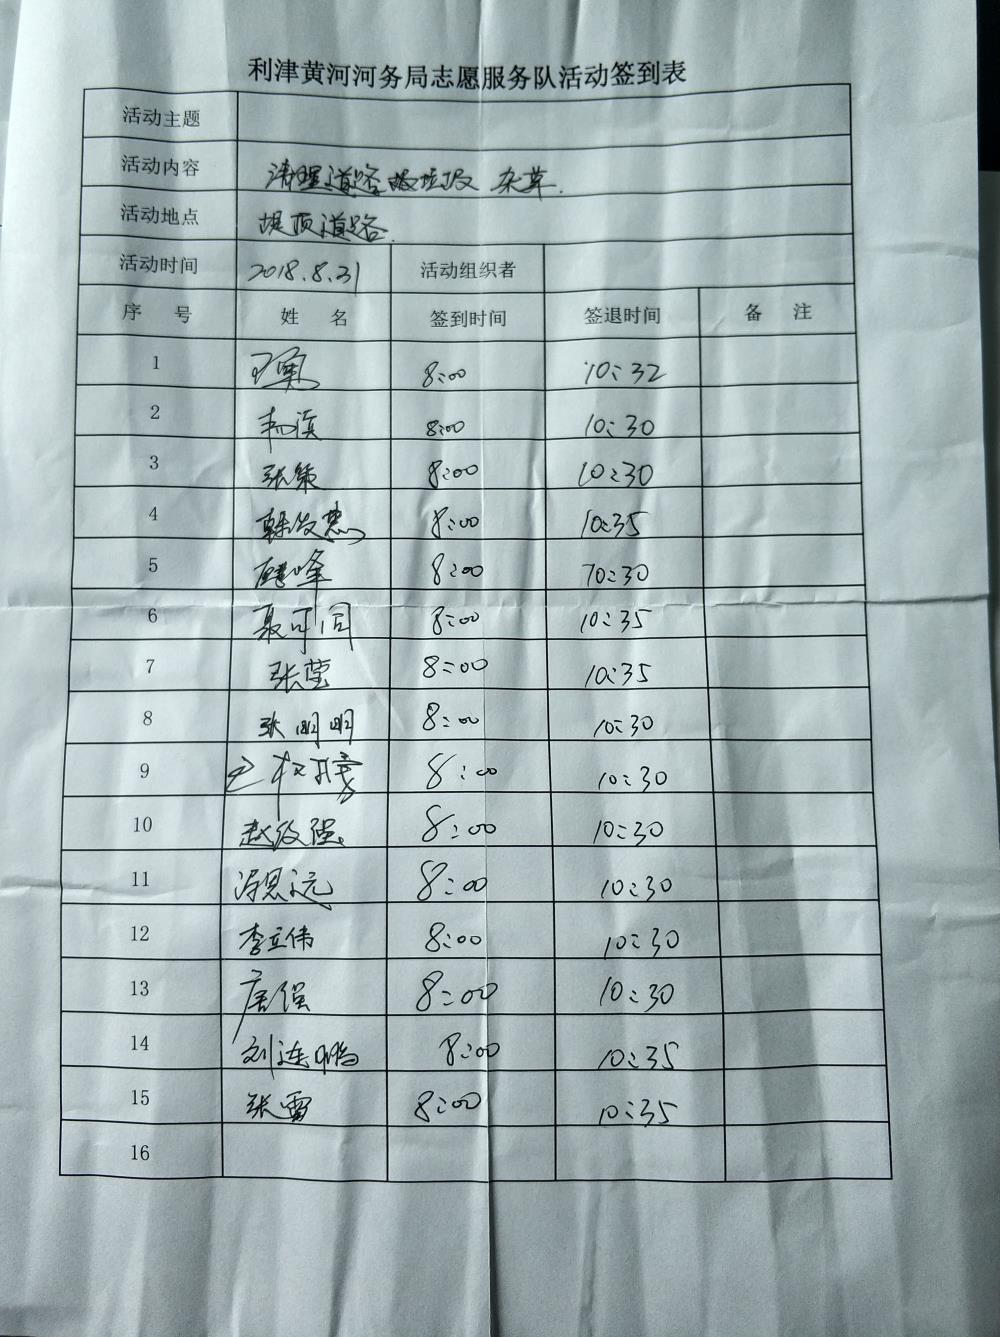 利津黄河河务局志愿服务队活动签到表
活动主题
活动内容 清理道路垃圾 杂草.
活动地点 堤顶道路.
活动时间 2018.8.31 活动组织者
序 号 姓 名 签到时间 签退时间 备 注
1 8:00 10:32
2 8:00 10:30
3 张策 8:00 10:30
4 8:00 10:35
5 8:00 10:30
6 聂可闫 8:00 10:35
7 张莹 8:00 10:35
8 张明明 8:00 10:30
9 8:00 10:30
10 赵俊强 8:00 10:30
11 冯思远 8:00 10:30
12 李立伟 8:00 10:30
13 唐强 8:00 10:30
14 刘连鹏 8:00 10:35
15 张雷 8:00 10:35
16